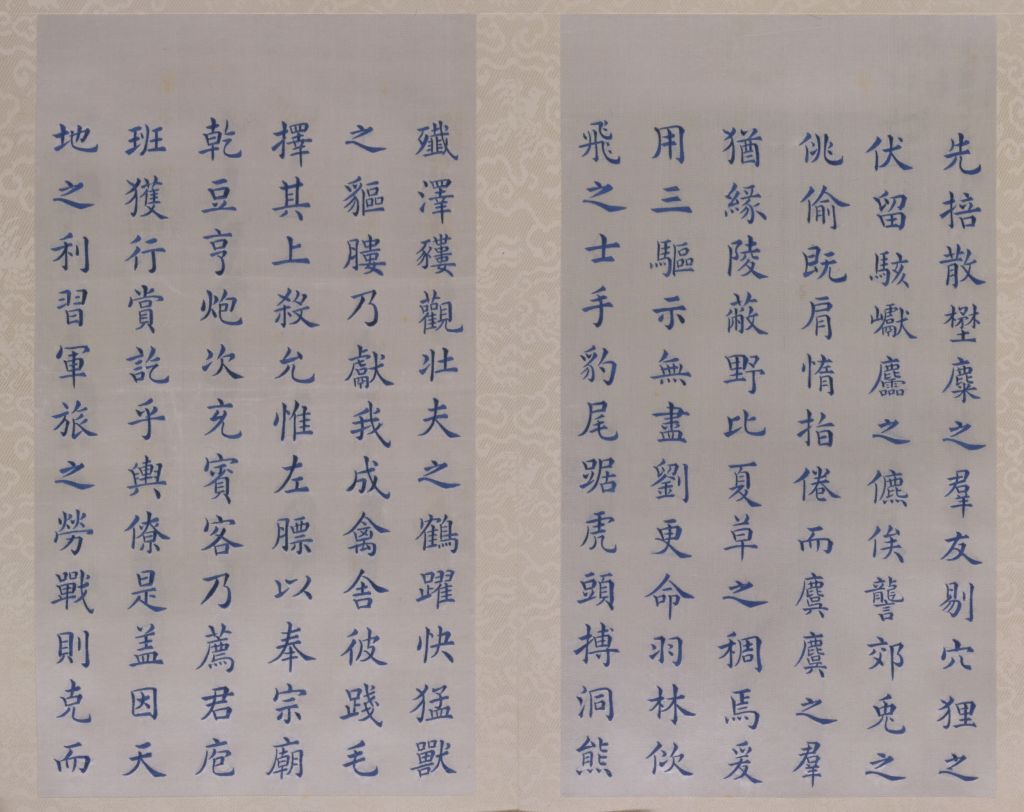 先掊散㙸麇之羣友剔穴狸之
伏留駭巘麢之儦俟讋郊兎之
佻偷既肩惰指倦而麌麌之羣
猶緣陵蔽野比夏草之稠焉爰
用三驅示無盡劉更命羽林佽
飛之士手豹尾踞虎頭搏洞熊
殲澤貗觀壯夫之鶴躍快猛獸
之貙膢乃獻我成禽舍彼踐毛
擇其上殺允惟左膘以奉宗廟
乾豆亨炮次充賓客乃薦君庖
班獲行賞訖乎輿僚是盖因天
地之利習軍旅之勞戰則克而